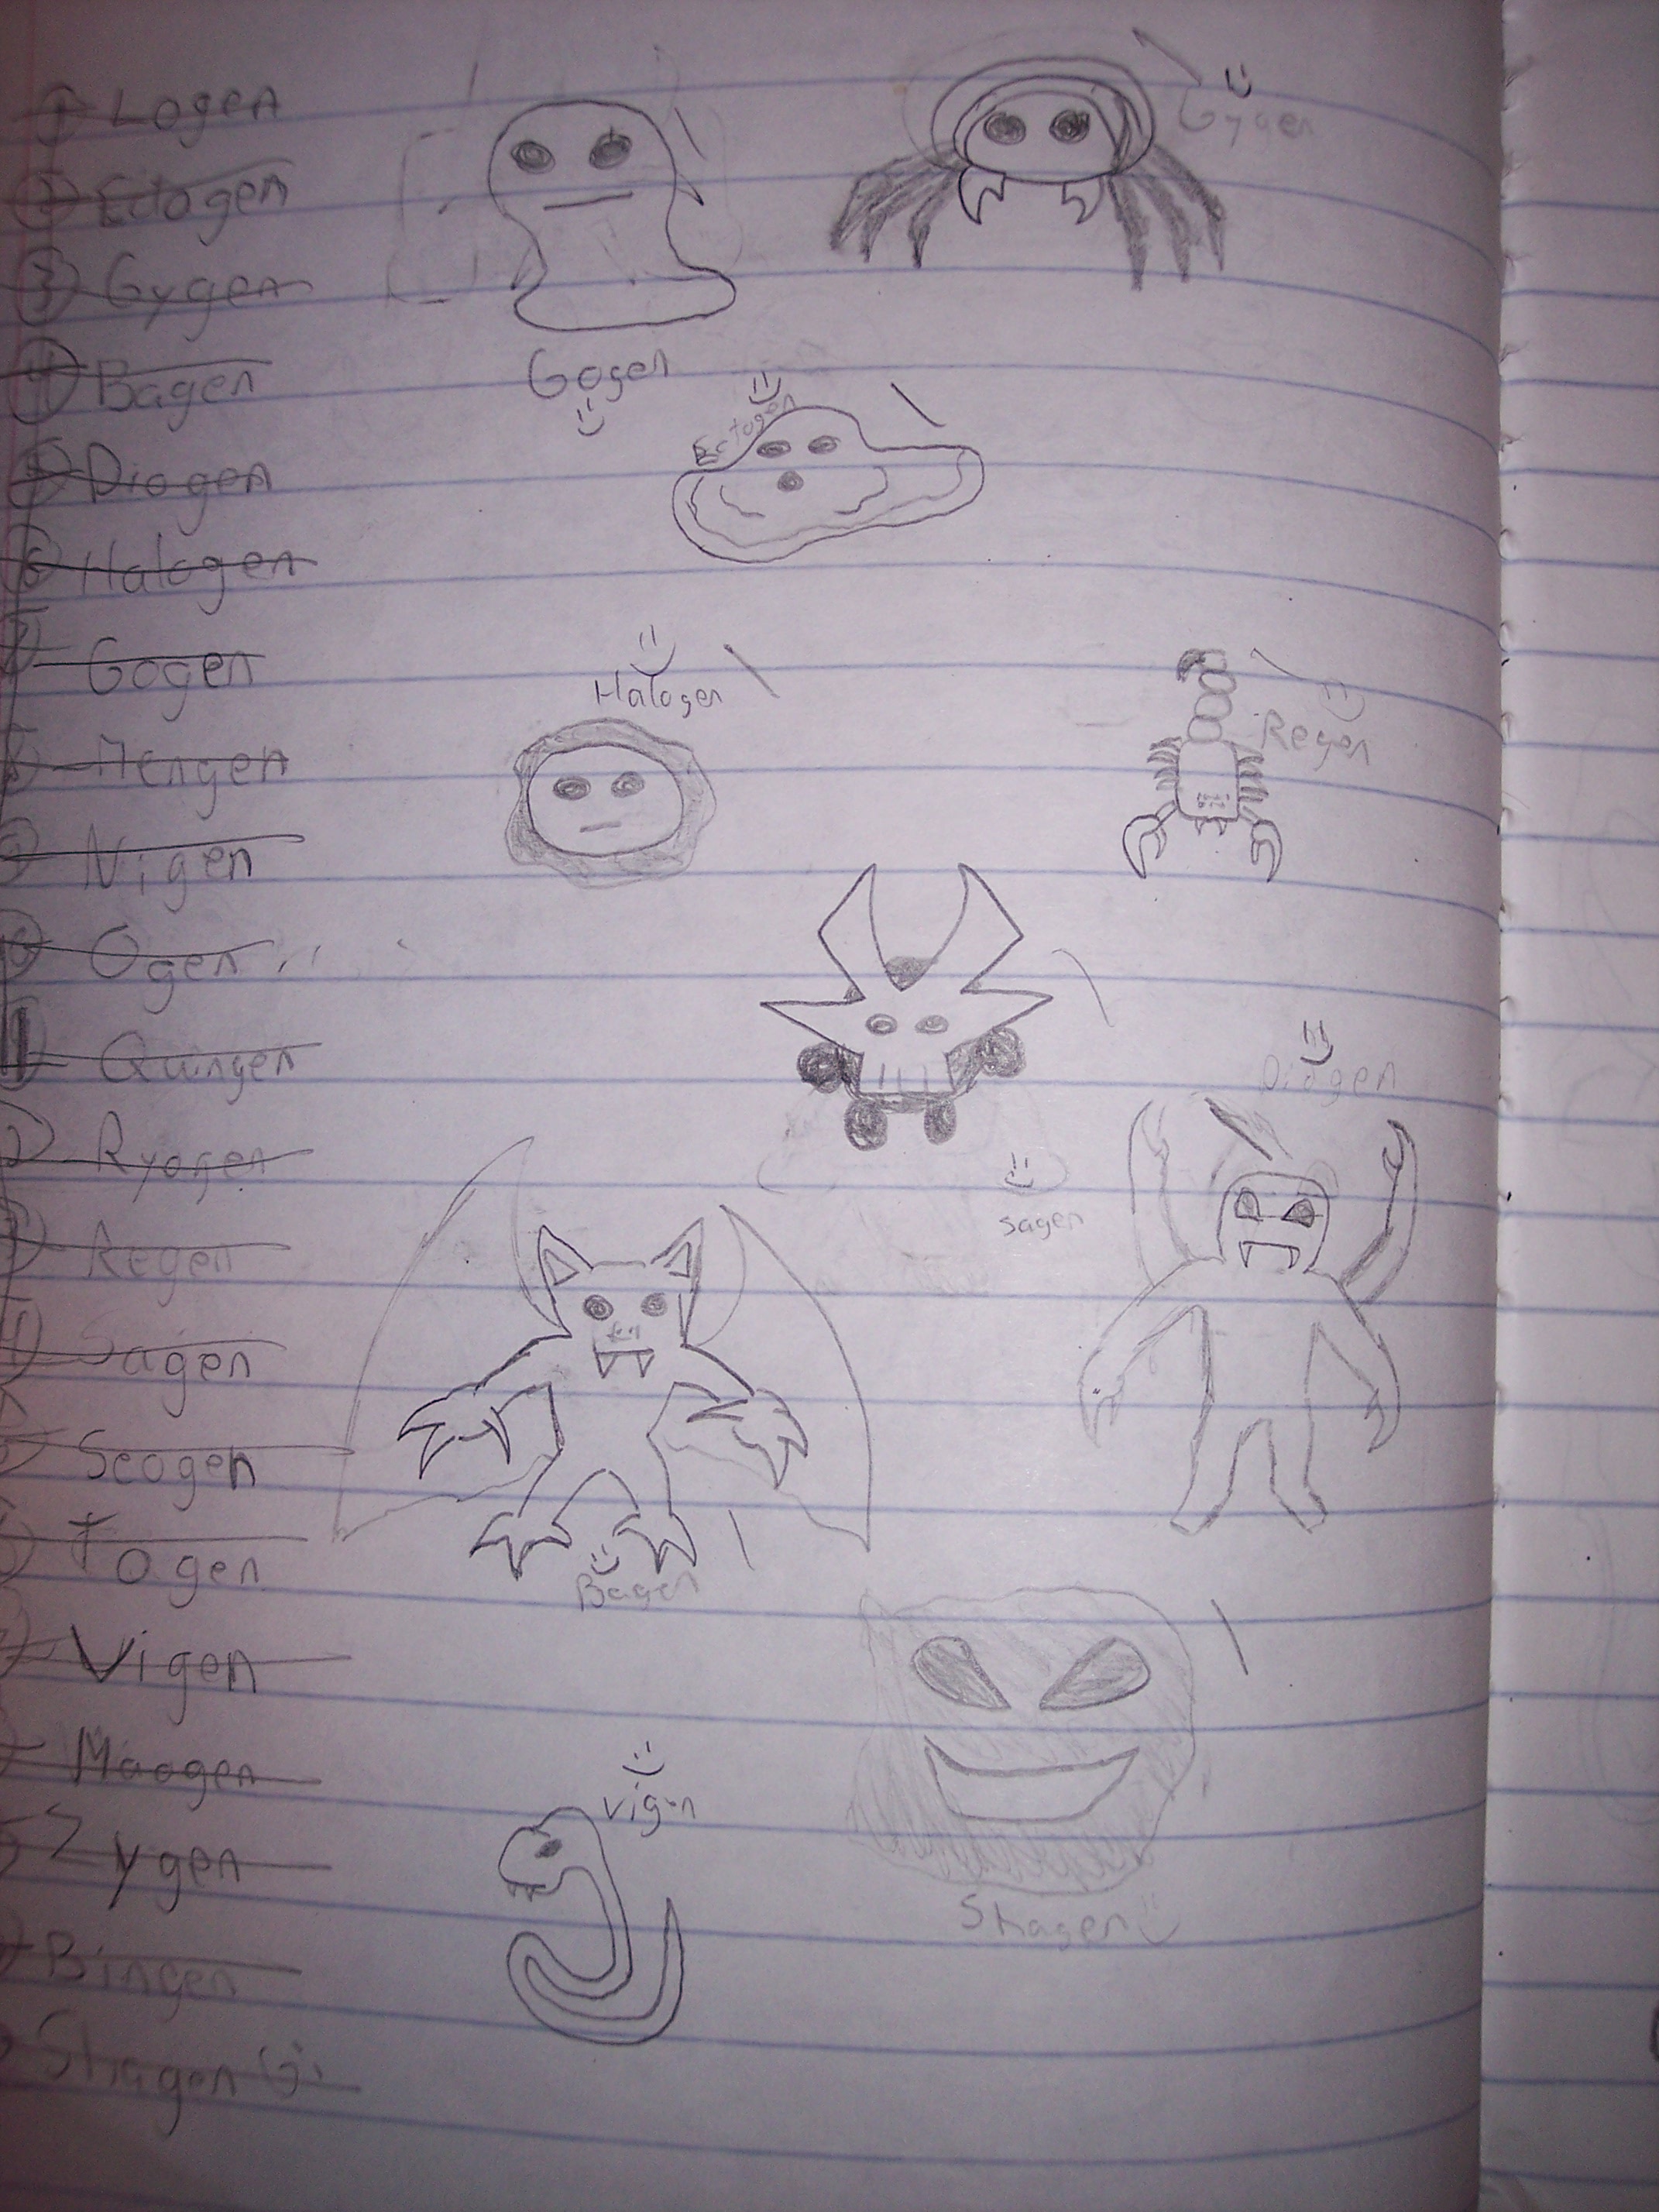 ① Logen
② Ectogen
③ Gygen
④ Bagen
⑤ Diogen
⑥ Halogen
7 Gogen
8 Mengen
9 Nigen
Ogen
11 Quingen
12 Ryogen
Regen
Sagen
Seogen
Togen
Vigen
Maogen
Zygen
Bingen
Shagen
Gygen
Gogen
Ectogen
Halogen
Regen
Sagen
Diogen
Bagen
Vigen
Shagen